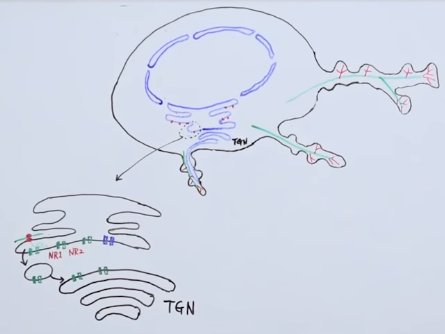 TGN
NR1 NR2
TGN